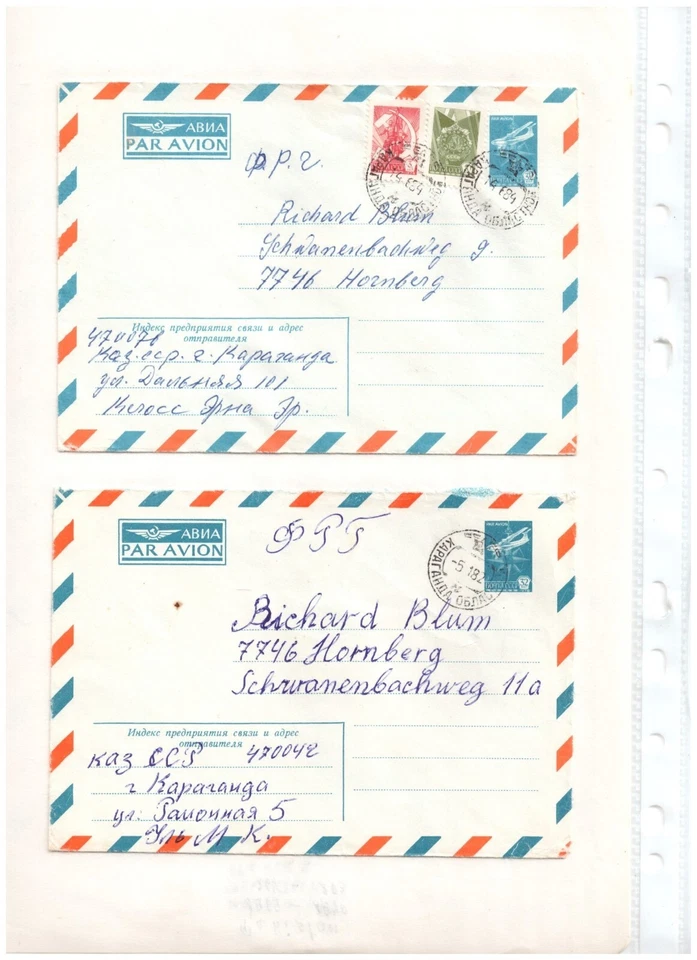 АВИА
PAR AVION
Ф.Р.Г.
Richard Blum
Schwanenbachweg 9.
7746 Hornberg
Индекс предприятия связи и адрес
отправителя
470076
Каз.сср. г. Караганда
ул. Дальняя 101
Клосс Эрна Эр.
АВИА
PAR AVION
ФРГ
КАРАГАНДА ОБЛАСТ
Richard Blum
7746 Hornberg
Schwanenbachweg 11a
Индекс предприятия связи и адрес
отправителя
каз ССР 470042
г Караганда
ул: Районная 5
Уль М. К.